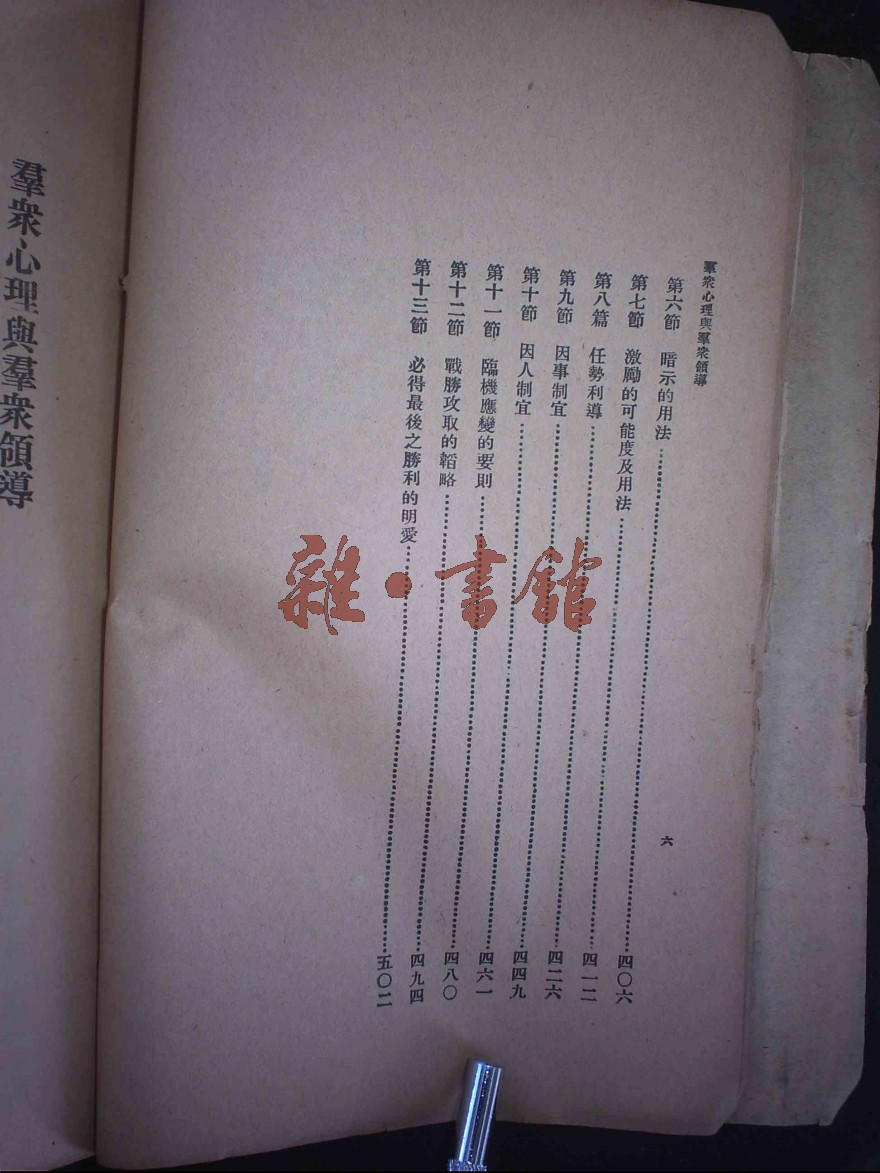 羣衆心理與羣衆領導
第六節 暗示的用法……四〇六
第七節 激勵的可能度及用法……四一二
第八篇 任勢利導……四二六
第九節 因事制宜……四四九
第十節 因人制宜……四六一
第十一節 臨機應變的要則……四八〇
第十二節 戰勝攻取的韜略……四九四
第十三節 必得最後之勝利的明愛……五〇二
六
羣衆心理與羣衆領導
雜·書館